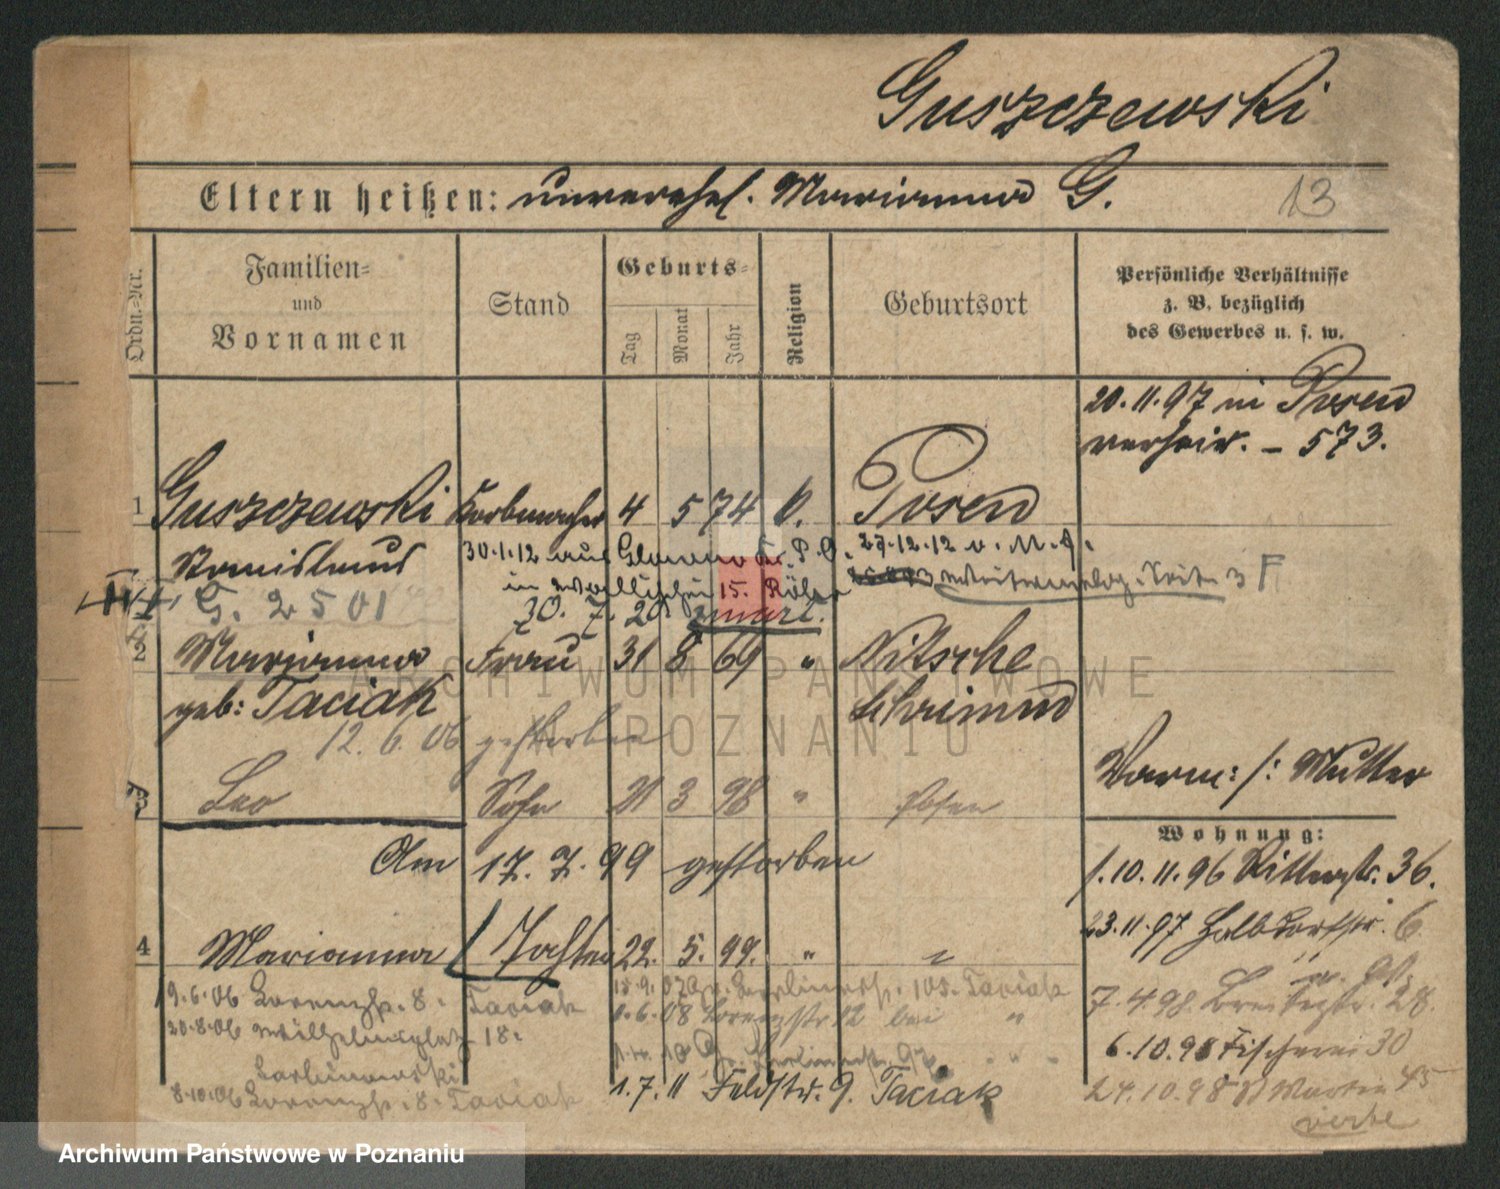 Guszczewski
Eltern heißen: unverehel. Marianna G.
13
Ordn.-Nr.
Familien-
und
Vornamen
Stand
Geburts-
Tag
Monat
Jahr
Religion
Geburtsort
Persönliche Verhältnisse
z. B. bezüglich
des Gewerbes u. s. w.
20.11.97 in Posen
verheir. - 573.
1 Guszczewski Korbmacher 4 5 74 k. Posen
Stanislaus
30.1.12 aus Glowno
27.12.12
in 15.
3 F
G. 2501
30. 7. 20
2 Marianna Frau 31 8 69 " Nitsche
geb: Taciak Schrimm
12. 6. 06 gestorben
Vorm: /: Mutter
3 Leo Sohn 21 3 98 " Posen
Wohnung:
Am 17. 7. 99 gestorben
1.10.11.96 Ritterstr. 36.
23.11.97 Halbdorfstr. 6.
4 Marianna Tochter 22. 5. 99. " "
19.6.06 Lorenzstr. 8. Taciak
15.9.07 105. Taciak
7.4.98. Breitestr. 28.
20.8.06 Wilhelmsplatz 18.
1.6.08 Lorenzstr. 12 bei "
6.10.98 Fischerei 30
8.10.06 Lorenzstr. 8. Taciak
1.7.11 Feldstr. 9. Taciak
24.10.98 St Martin 45
ARCHIWUM PAŃSTWOWE
W POZNANIU
Archiwum Państwowe w Poznaniu